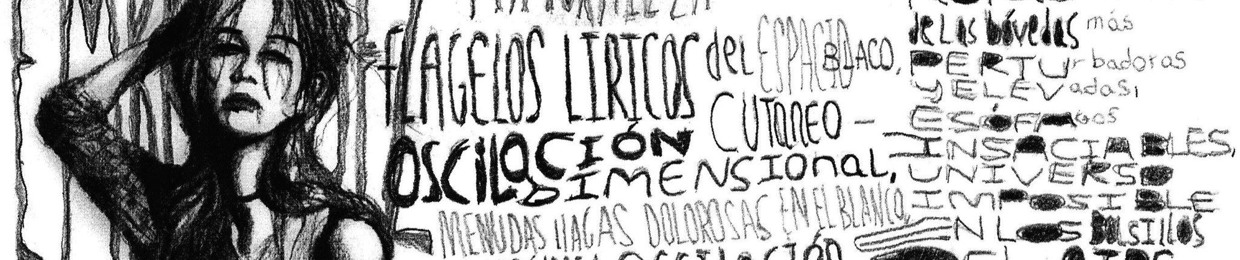 FLAGELOS LIRICOS del ESPACIO BLACO,
CUTANEO –
OSCILACIÓN
DIMENSIONAL,
MENUDAS LLAGAS DOLOROSAS EN EL BLANCO,
OSCILACIÓN
de las bóvedas más
PERTUrbadoras
Y ELEVadas,
ESÓFAgos
INSACIABLES,
UNIVERSO
IMPOSIBLE
EN LOS BolSillos